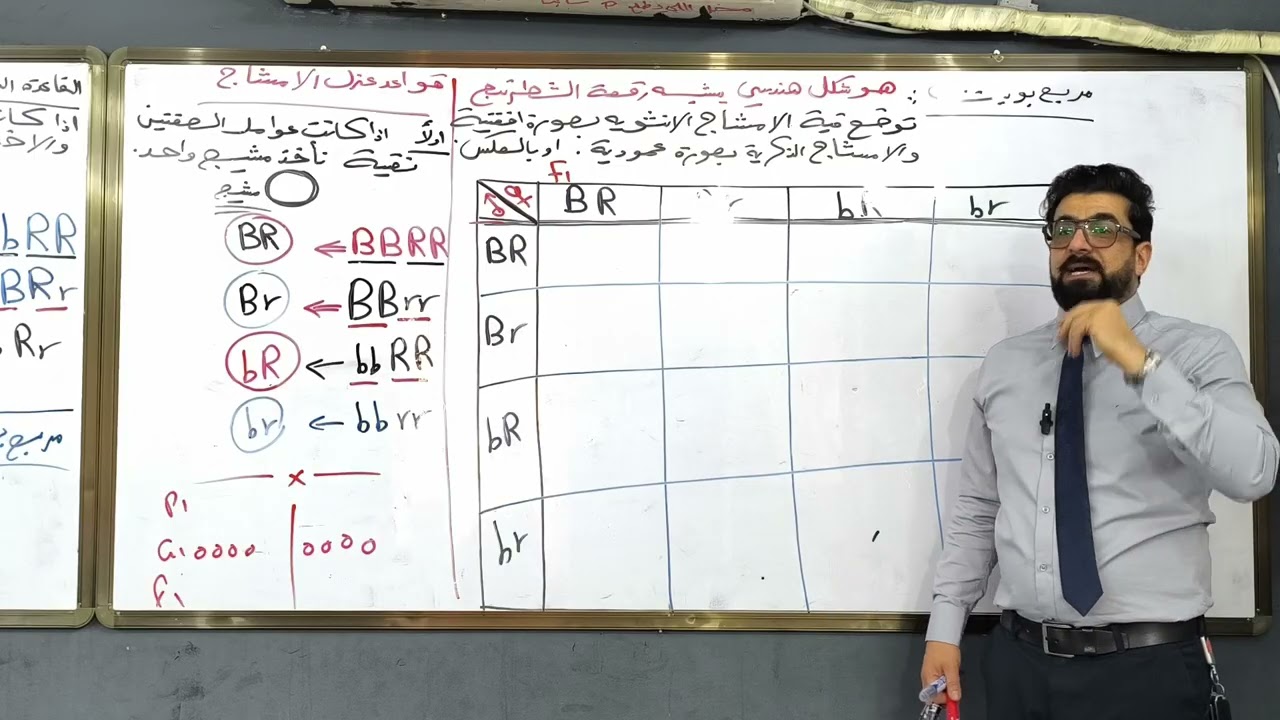 مربع بونيت : هو شكل هندسي يشبه رقعة الشطرنج
توضع فية الامشاج الانثوية بصورة افقية
والامشاج الذكرية بصورة عمودية : او بالعكس.
F1
♂ ♀ BR bR br
BR
Br
bR
br
قواعد عزل الامشاج
اولاً اذا كانت عوامل الصفتين
نقية تأخذ مشيج واحد.
مشيج
BR ⇐ BBRR
Br ⇐ BBrr
bR ← bbRR
br ← bbrr
x
P1
G1 0000 | 0000
F1
القاعدة
اذا كان
bRR
BRr
Rr
مربع